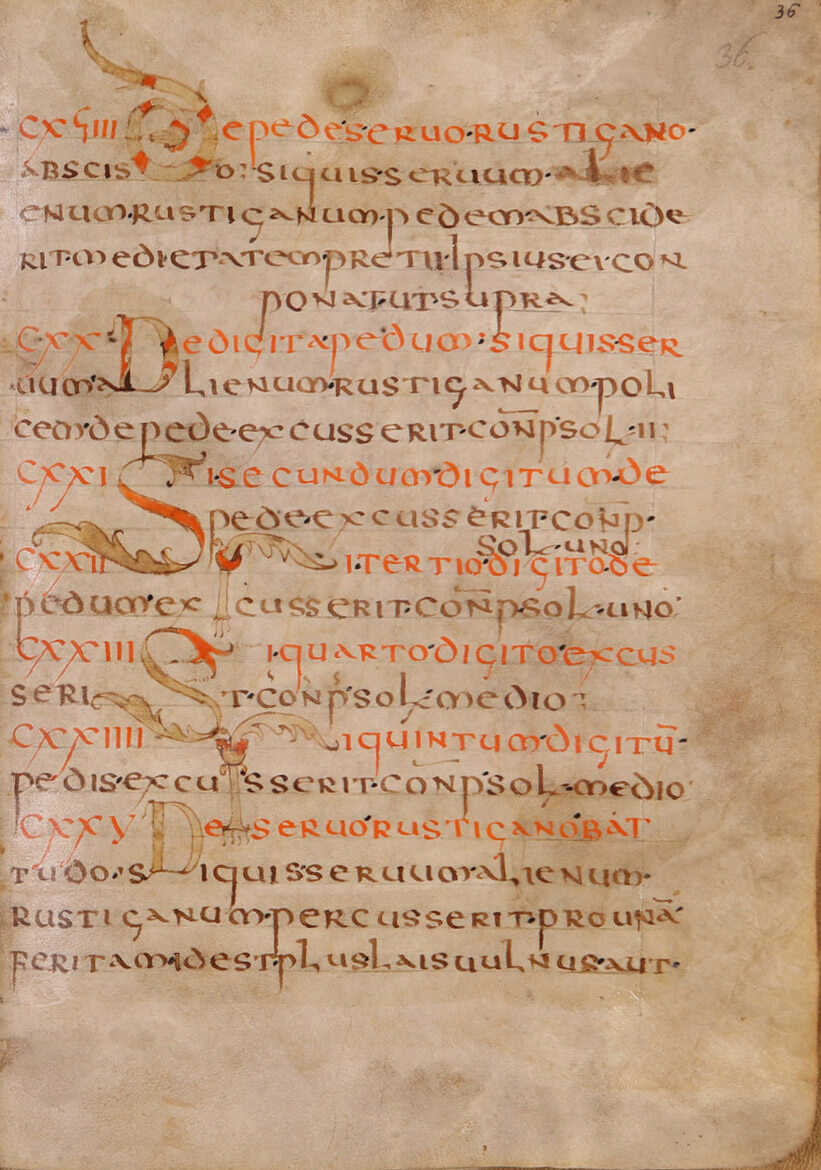 36
36.
CXVIIII De pede seruo rusticano
absciso: si quis seruum alie
enum rusticanum pedem abscide
rit medietatem pretii ipsius ei con
ponat ut supra;
CXX De digita pedum: si quis ser
uum alienum rusticanum poli
cem de pede excusserit conp̄ sol II;
CXXI Si secundum digitum de
pede excusserit conp̄
sol uno
CXXII Si tertio digito de
pedum excusserit conp̄ sol uno
CXXIII Si quarto digito excus
serit conp̄ sol medio;
CXXIIII Si quintum digitū
pedis excusserit conp̄ sol medio
CXXV De seruo rusticano bat
tudo si quis seruum alienum
rusticanum percusserit pro unā
feritam id est plus lais uulnus aut